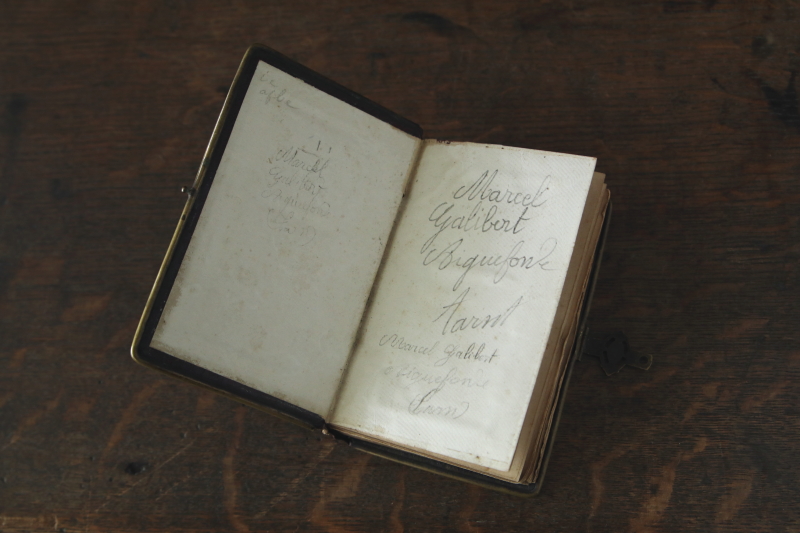 Marcel
Galibert
Marcel
Galibert
Biguefonde
Tarn
Marcel Galibert
à Biguefonde
Tarn